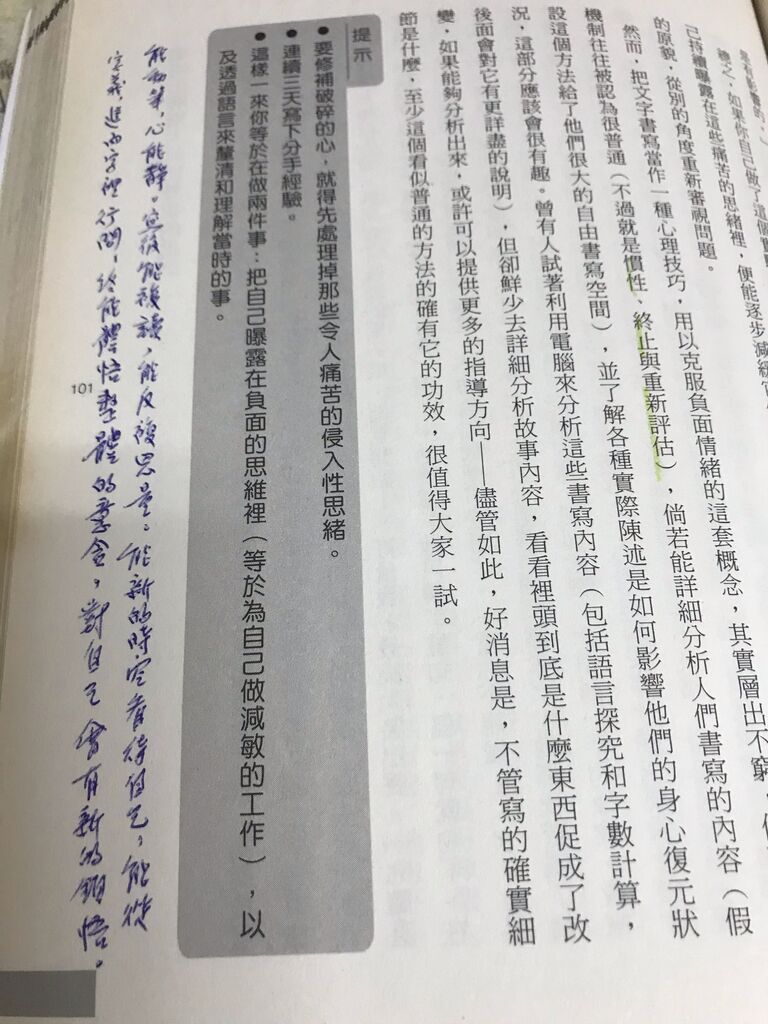 是有影響的。）
總之，如果你自己做了這個實
己持續曝露在這些痛苦的思緒裡，便能逐步減緩
的原貌，從別的角度重新審視問題。
然而，把文字書寫當作一種心理技巧，用以克服負面情緒的這套概念，其實層出不窮，
機制往往被認為很普通（不過就是慣性、終止與重新評估），倘若能詳細分析人們書寫的內容（假
設這個方法給了他們很大的自由書寫空間），並了解各種實際陳述是如何影響他們的身心復元狀
況，這部分應該會很有趣。曾有人試著利用電腦來分析這些書寫內容（包括語言探究和字數計算，
後面會對它有更詳盡的說明），但卻鮮少去詳細分析故事內容，看看裡頭到底是什麼東西促成了改
變，如果能夠分析出來，或許可以提供更多的指導方向——儘管如此，好消息是，不管寫的確實細
節是什麼，至少這個看似普通的方法的確有它的功效，很值得大家一試。
提示
●要修補破碎的心，就得先處理掉那些令人痛苦的侵入性思緒。
●連續三天寫下分手經驗。
●這樣一來你等於在做兩件事：把自己曝露在負面的思維裡（等於為自己做減敏的工作），以
及透過語言來釐清和理解當時的事。
能動筆，心能靜。寫後能複讀，能反覆思量。能新的時空看待自己，能從
字義，進而字裡行間，終能體悟整體的意念，對自己會有新的領悟。
101